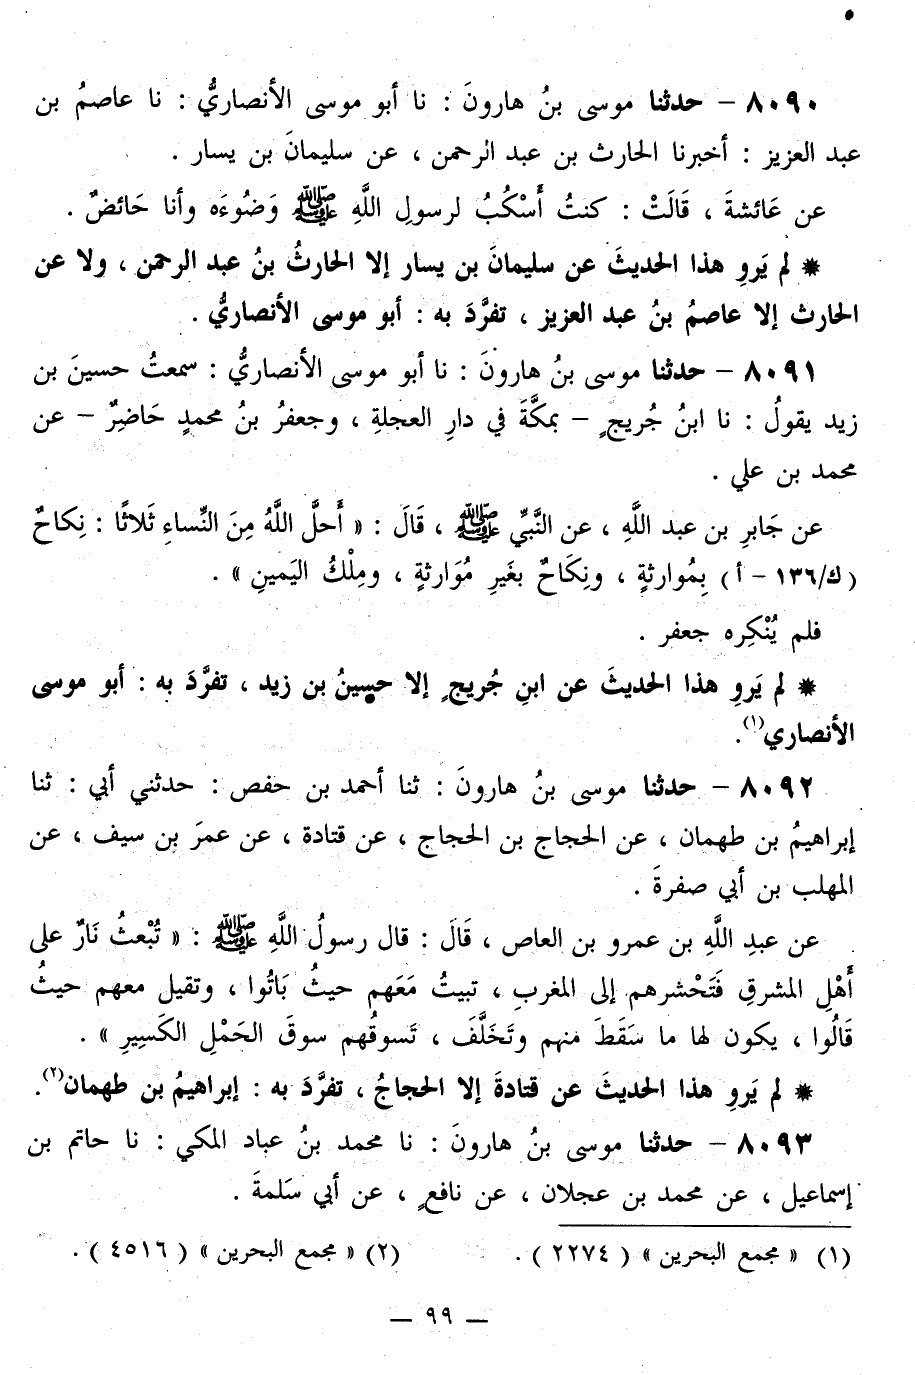 ٨٠٩٠ – حدثنا موسى بنُ هارونَ : نا أبو موسى الأنصاريُّ : نا عاصمُ بن
عبد العزيز : أخبرنا الحارث بن عبد الرحمن ، عن سليمانَ بن يسار .
عن عَائشةَ ، قَالَتْ : كنتُ أَسْكُبُ لرسولِ اللَّهِ ﷺ وَضُوءَه وأنا حَائضٌ .
* لم يَروِ هذا الحديثَ عن سليمانَ بن يسار إلا الحارثُ بنُ عبد الرحمن ، ولا عن
الحارث إلا عاصمُ بنُ عبد العزيز ، تفرَّدَ به : أبو موسى الأنصاريُّ .
٨٠٩١ – حدثنا موسى بنُ هارونَ : نا أبو موسى الأنصاريُّ : سمعتُ حسينَ بن
زيد يقولُ : نا ابنُ جُريجٍ – بمكَّةَ في دارِ العجلةِ ، وجعفرُ بنُ محمدٍ حَاضِرٌ – عن
محمد بن علي .
عن جَابرِ بن عبد اللَّهِ ، عن النَّبيِّ ﷺ ، قَالَ : « أَحلَّ اللَّهُ مِنَ النِّساءِ ثَلاثًا : نِكاحٌ
( ك/١٣٦ – أ ) بِمُوارثةٍ ، ونِكَاحٌ بغَيرِ مُوَارثةٍ ، ومِلْكُ اليَمينِ » .
فلم يُنْكِره جعفر .
* لم يَروِ هذا الحديثَ عن ابنِ جُريجٍ إلا حسينُ بن زيد ، تفرَّدَ به : أبو موسى
الأنصاري(١).
٨٠٩٢ – حدثنا موسى بنُ هارونَ : ثنا أحمد بن حفص : حدثني أبي : ثنا
إبراهيمُ بن طهمان ، عن الحجاج بن الحجاج ، عن قتادة ، عن عمرَ بن سيف ، عن
المهلب بن أبي صفرةَ .
عن عبدِ اللَّهِ بن عمرو بن العاص ، قَالَ : قال رسولُ اللَّهِ ﷺ : « تُبْعثُ نَارٌ على
أَهْلِ المشرقِ فَتَحْشرهم إلى المغربِ ، تبيتُ مَعَهم حيثُ بَاتُوا ، وتقيل معهم حيثُ
قَالُوا ، يكون لها ما سَقَطَ منهم وتَخَلَّفَ ، تَسوقُهم سوقَ الحَمْلِ الكَسِيرِ » .
* لم يَروِ هذا الحديثَ عن قتادةَ إلا الحجاجُ ، تفرَّدَ به : إبراهيمُ بن طهمان(٢).
٨٠٩٣ – حدثنا موسى بنُ هارونَ : نا محمد بنُ عباد المكي : نا حاتم بن
إسماعيل ، عن محمد بن عجلان ، عن نافعٍ ، عن أبي سَلمةَ .
(١) « مجمع البحرين » ( ٢٢٧٤ ) . (٢) « مجمع البحرين » ( ٤٥١٦ ) .
— ٩٩ —